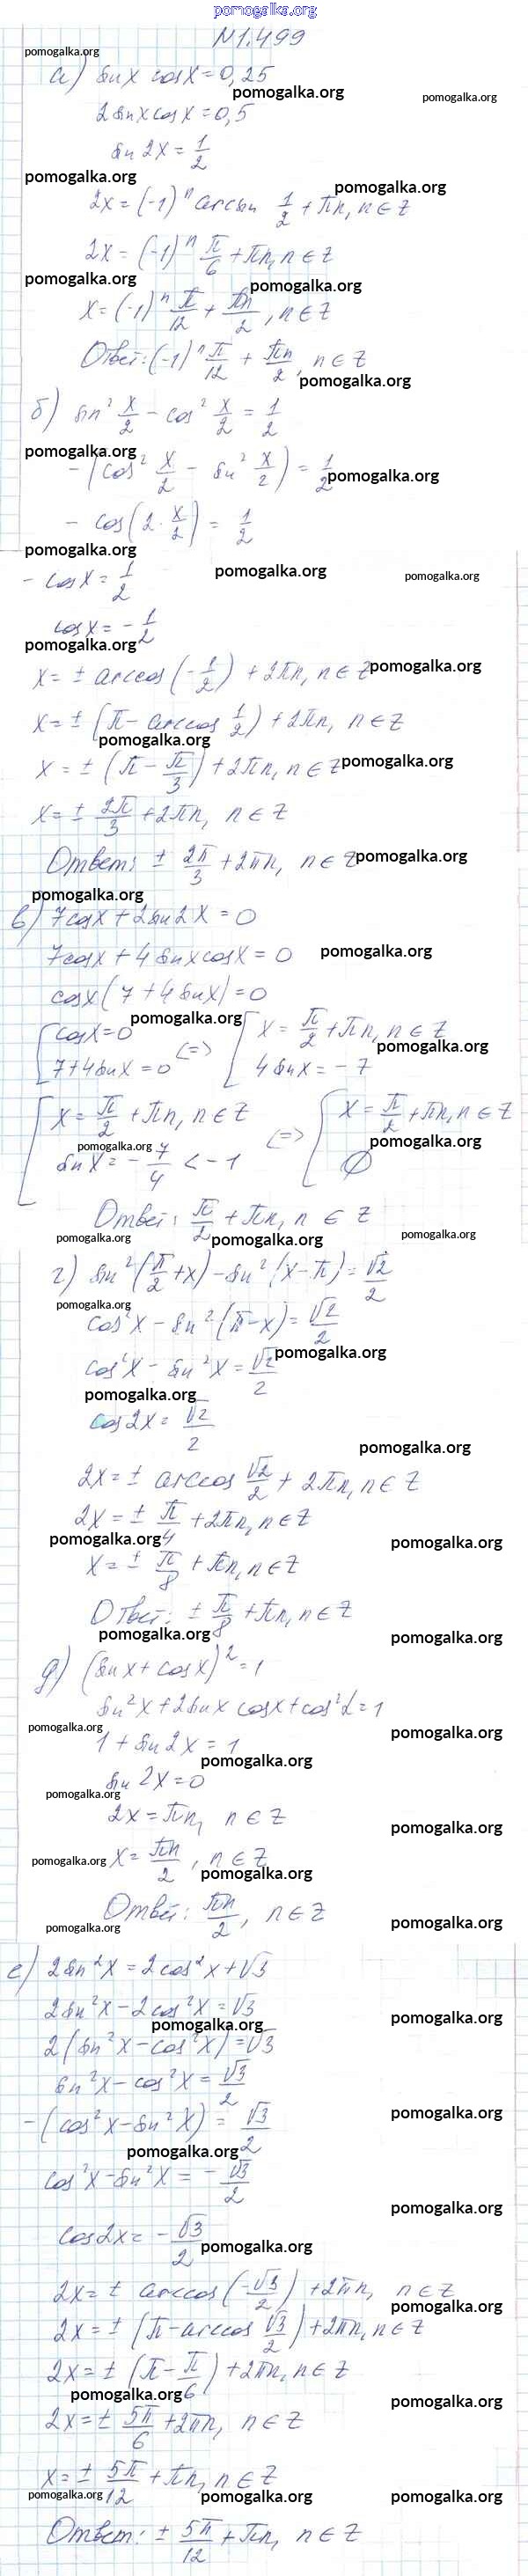 pomogalka.org
№1.499
а) sin x cos x = 0,25
2 sin x cos x = 0,5
sin 2x = 1/2
2x = (-1)^n arcsin 1/2 + πn, n ∈ Z
2x = (-1)^n π/6 + πn, n ∈ Z
x = (-1)^n π/12 + πn/2, n ∈ Z
Ответ: (-1)^n π/12 + πn/2, n ∈ Z
б) sin² x/2 - cos² x/2 = 1/2
- (cos² x/2 - sin² x/2) = 1/2
- cos(2 · x/2) = 1/2
- cos x = 1/2
cos x = - 1/2
x = ± arccos(- 1/2) + 2πn, n ∈ Z
x = ± (π - arccos 1/2) + 2πn, n ∈ Z
x = ± (π - π/3) + 2πn, n ∈ Z
x = ± 2π/3 + 2πn, n ∈ Z
Ответ: ± 2π/3 + 2πn, n ∈ Z
в) 7cos x + 2sin 2x = 0
7cos x + 4 sin x cos x = 0
cos x (7 + 4 sin x) = 0
[ cos x = 0 <=> [ x = π/2 + πn, n ∈ Z
7 + 4 sin x = 0 4 sin x = - 7
[ x = π/2 + πn, n ∈ Z <=> [ x = π/2 + πn, n ∈ Z
sin x = - 7/4 < -1 ∅
Ответ: π/2 + πn, n ∈ Z
г) sin²(π/2 + x) - sin²(x - π) = √2/2
cos²x - sin²(π - x) = √2/2
cos²x - sin²x = √2/2
cos 2x = √2/2
2x = ± arccos √2/2 + 2πn, n ∈ Z
2x = ± π/4 + 2πn, n ∈ Z
x = ± π/8 + πn, n ∈ Z
Ответ: ± π/8 + πn, n ∈ Z
д) (sin x + cos x)² = 1
sin²x + 2 sin x cos x + cos²x = 1
1 + sin 2x = 1
sin 2x = 0
2x = πn, n ∈ Z
x = πn/2, n ∈ Z
Ответ: πn/2, n ∈ Z
е) 2 sin²x = 2 cos²x + √3
2 sin²x - 2 cos²x = √3
2 (sin²x - cos²x) = √3
sin²x - cos²x = √3/2
- (cos²x - sin²x) = √3/2
cos²x - sin²x = - √3/2
cos 2x = - √3/2
2x = ± arccos(- √3/2) + 2πn, n ∈ Z
2x = ± (π - arccos √3/2) + 2πn, n ∈ Z
2x = ± (π - π/6) + 2πn, n ∈ Z
2x = ± 5π/6 + 2πn, n ∈ Z
x = ± 5π/12 + πn, n ∈ Z
Ответ: ± 5π/12 + πn, n ∈ Z